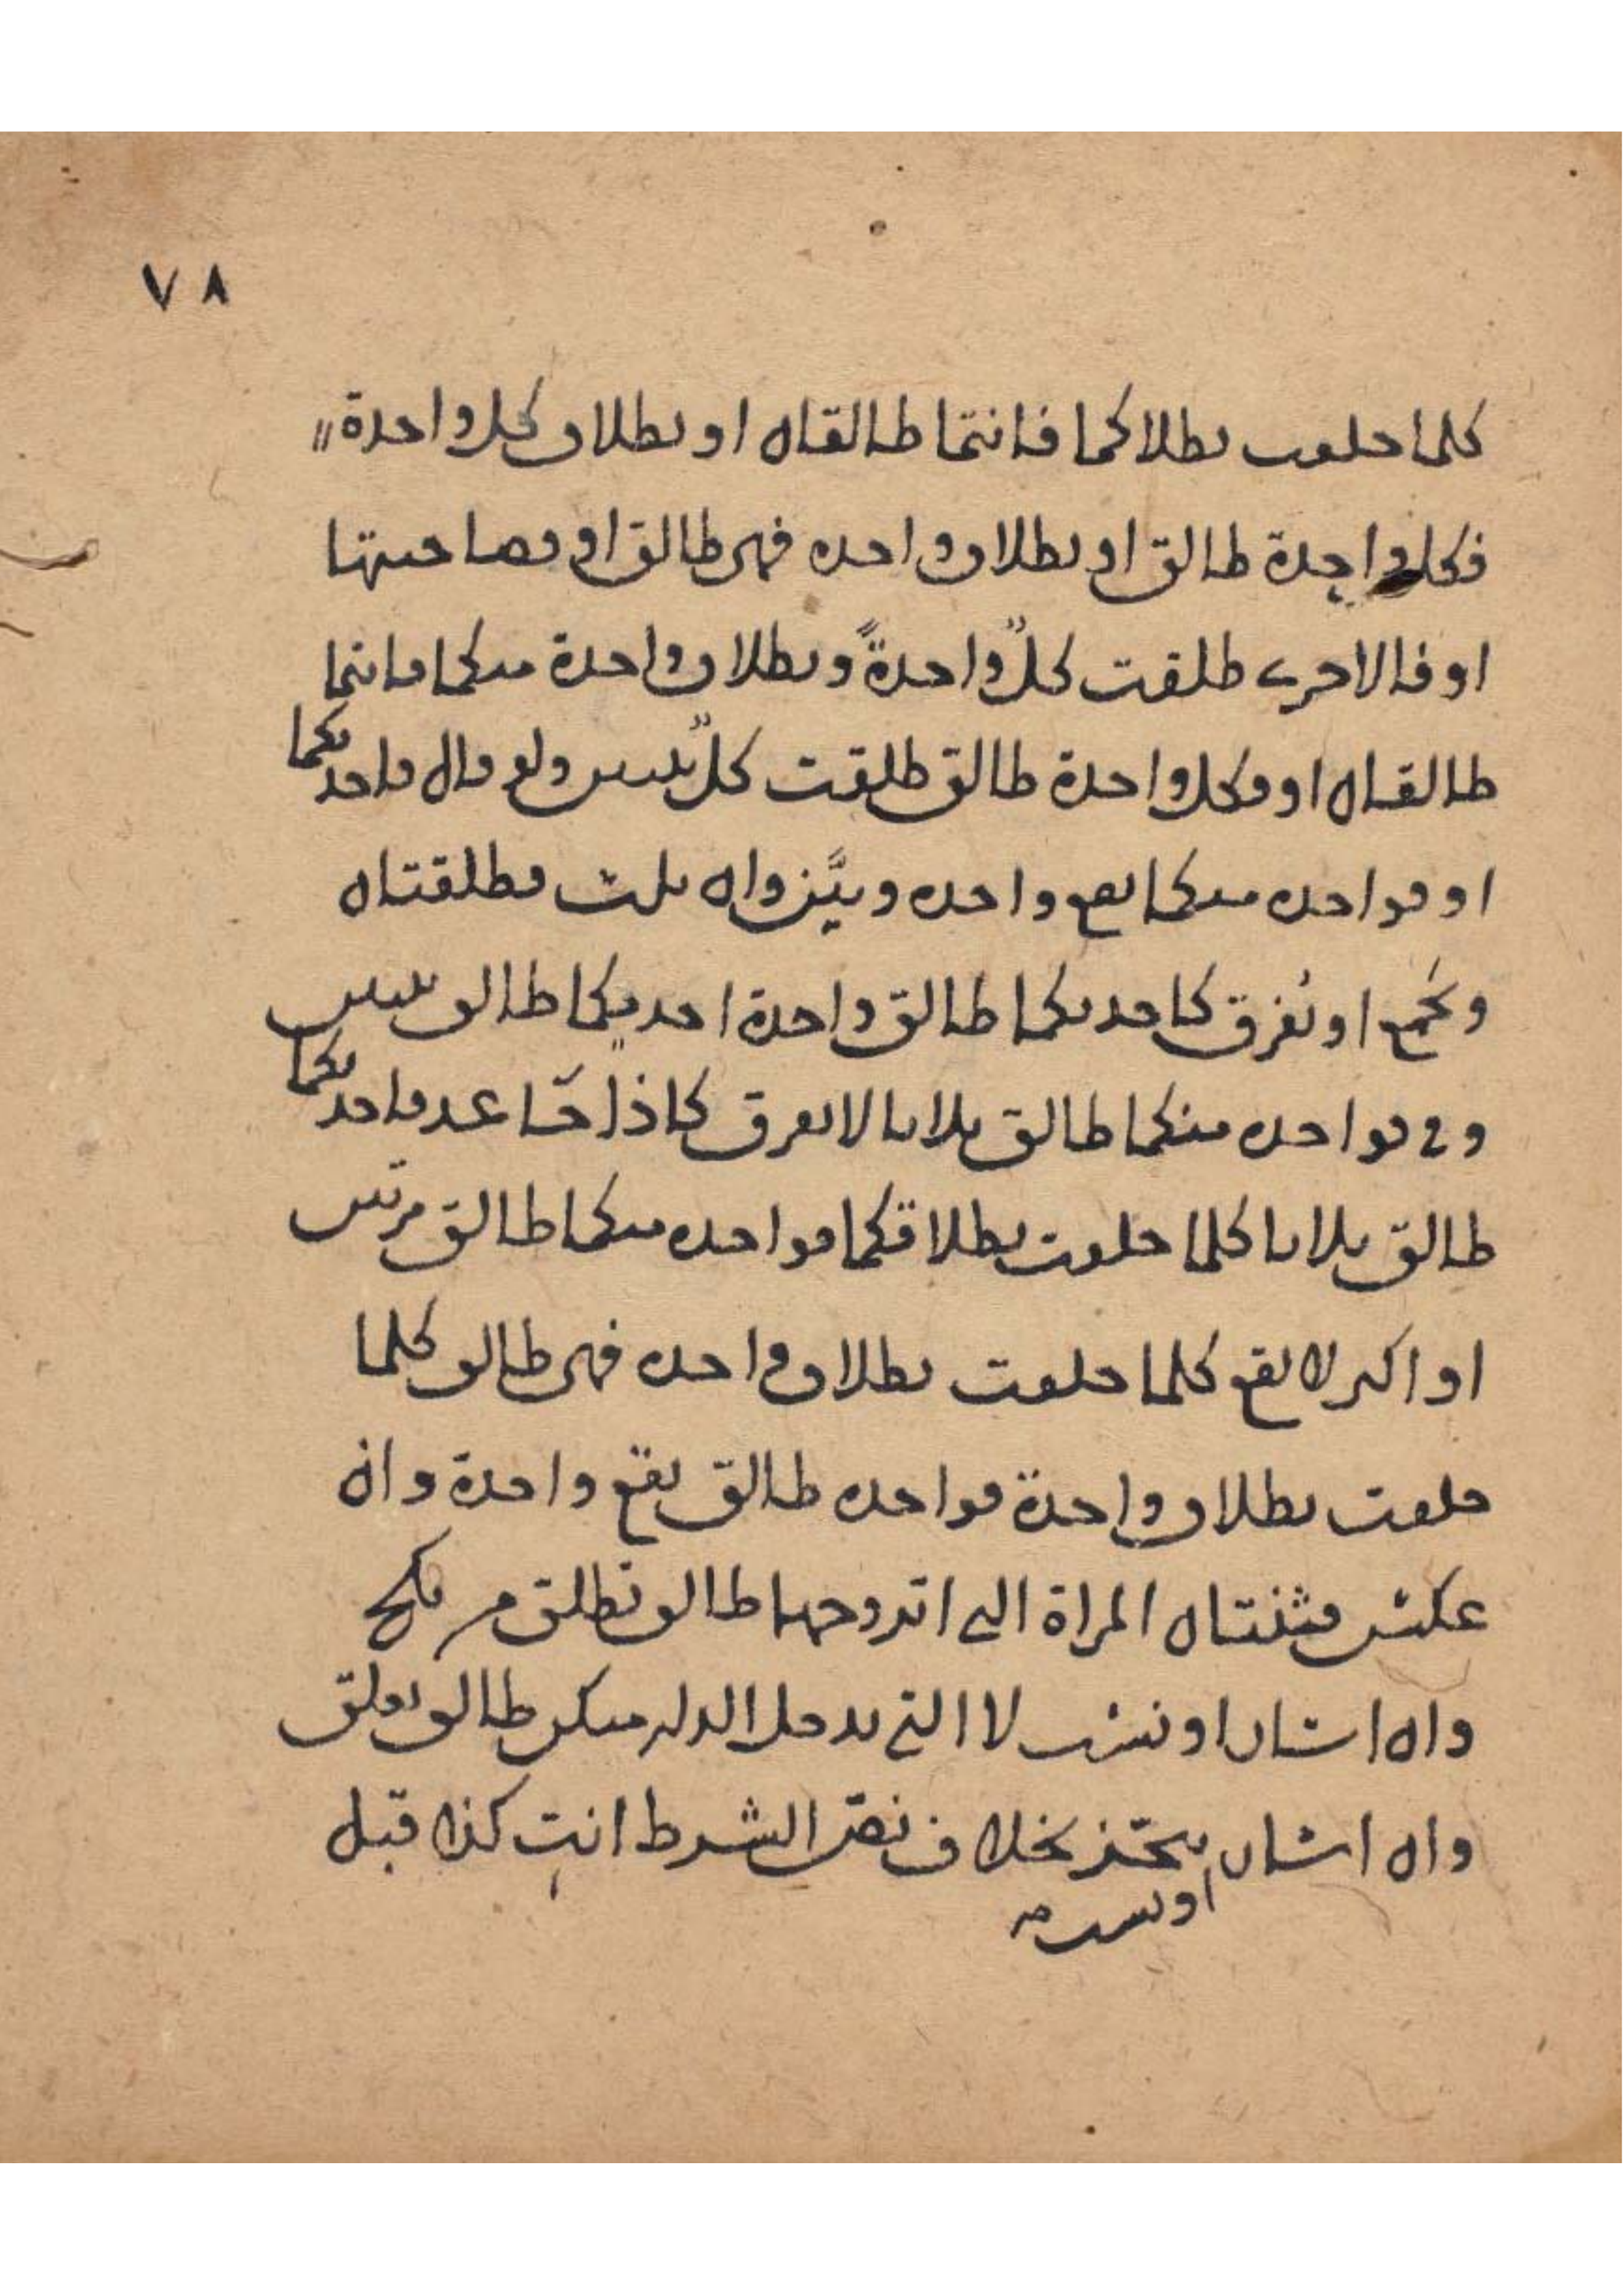 ٧٨
كلما حلفت بطلاقكما فانتما طالقان او بطلاق كل واحدة
فكل واحدة طالق او بطلاق واحده فهي طالق او فصاحبتها
او فالاخرى طلقت كلٌ واحدةً وبطلاق واحدة منكما فانتما
طالقان او فكل واحدة طالق طلقت كلٌ ثنتين ولو قال فاحديكما
او فواحده منكما يقع واحده ويبيّن وان ثلث فطلقتان
ويجمع او يُفرق كاحديكما طالق واحدة احديكما طالق ثنتين
وفي فواحده منكما طالق ثلاثا لا يفرق كاذا جَا غد فاحديكما
طالق ثلاثا كلما حلفت بطلاقكما فواحده منكما طالق مرتين
او اكثر لا يقع كلما حلفت بطلاق واحده فهي طالق كلما
حلفت بطلاق واحدة فواحده طالق يقع واحدة وان
عكس فثنتان المراة التي اتزوجها طالق تطلق من نكح
وان اشار او نسب لا التي تدخل الدار منكن طالق يعلق
وان اشار ينجّز بخلاف نصّ الشرط انتِ كذا قبل
او نسب صح